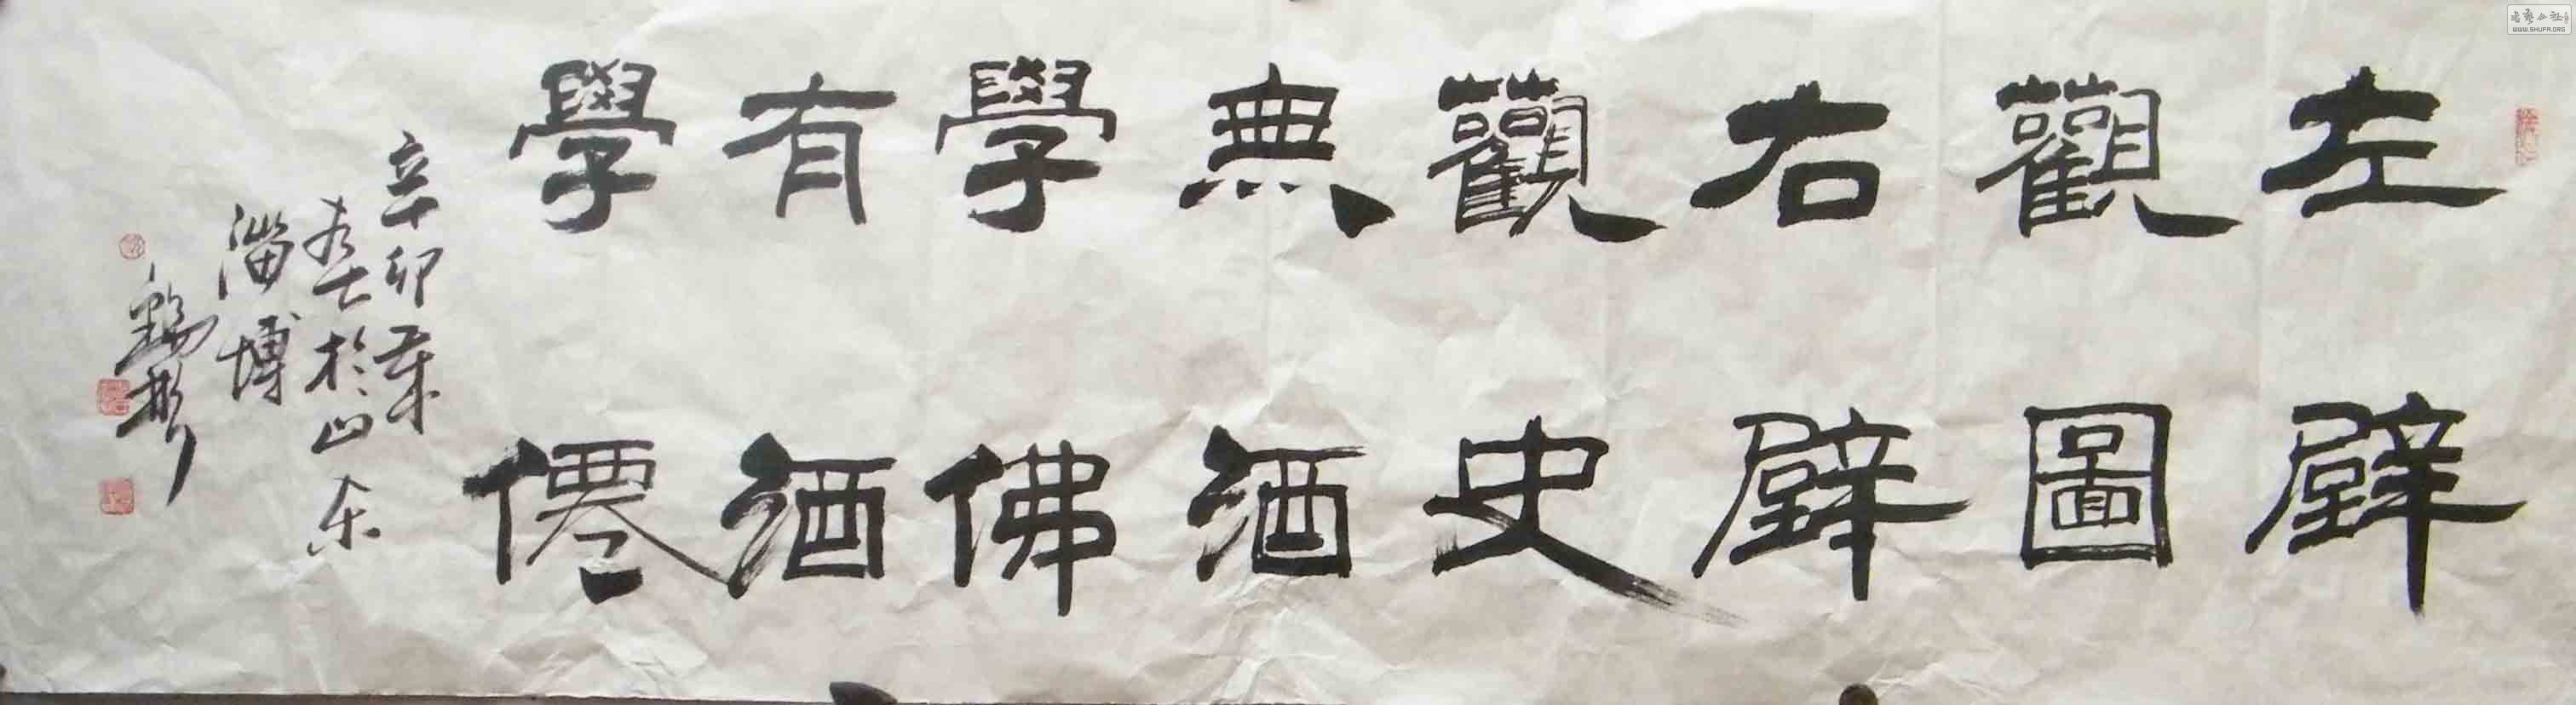 左壁
觀圖
右壁
觀史
無酒
學佛
有酒
學僊
辛卯菊
月於山东
淄博
WWW.SHUFA.ORG